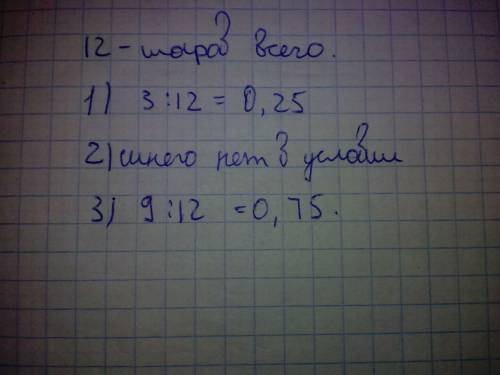 12 - шаров всего.
1) 3:12 = 0,25
2) синего нет в условии
3) 9:12 = 0,75.